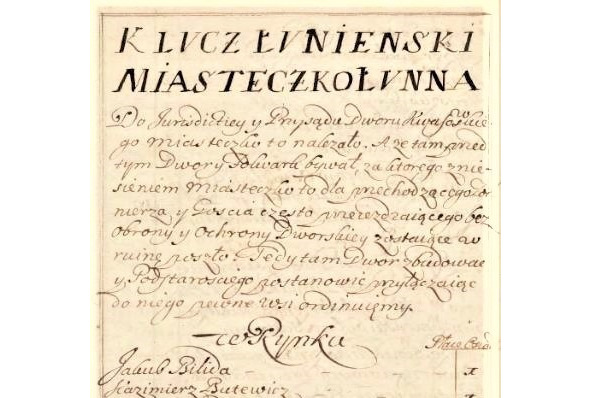 KLUCZ ŁUNIENSKI
MIASTECZKO ŁUNNA
Do Jurisdictiey y Przysądu Dworu Kwasowskie
go Miasteczko to należało. A że tam przed
tym Dwor y Folwark bywał, za ktorego znie-
sieniem Miasteczko to dla przechodzącego żoł
nierza y Goscia często przeiezdzaiącego bez
obrony y Ochrony Dworskiey zostaiące w
ruinę poszło. Tedy tam Dwor zbudowac
y Podstarosciego postanowic wyłączaiąc
do niego pewne wsi ordinuięmy.
w Rynku
Jakub Biłida
Kazimierz Butewicz